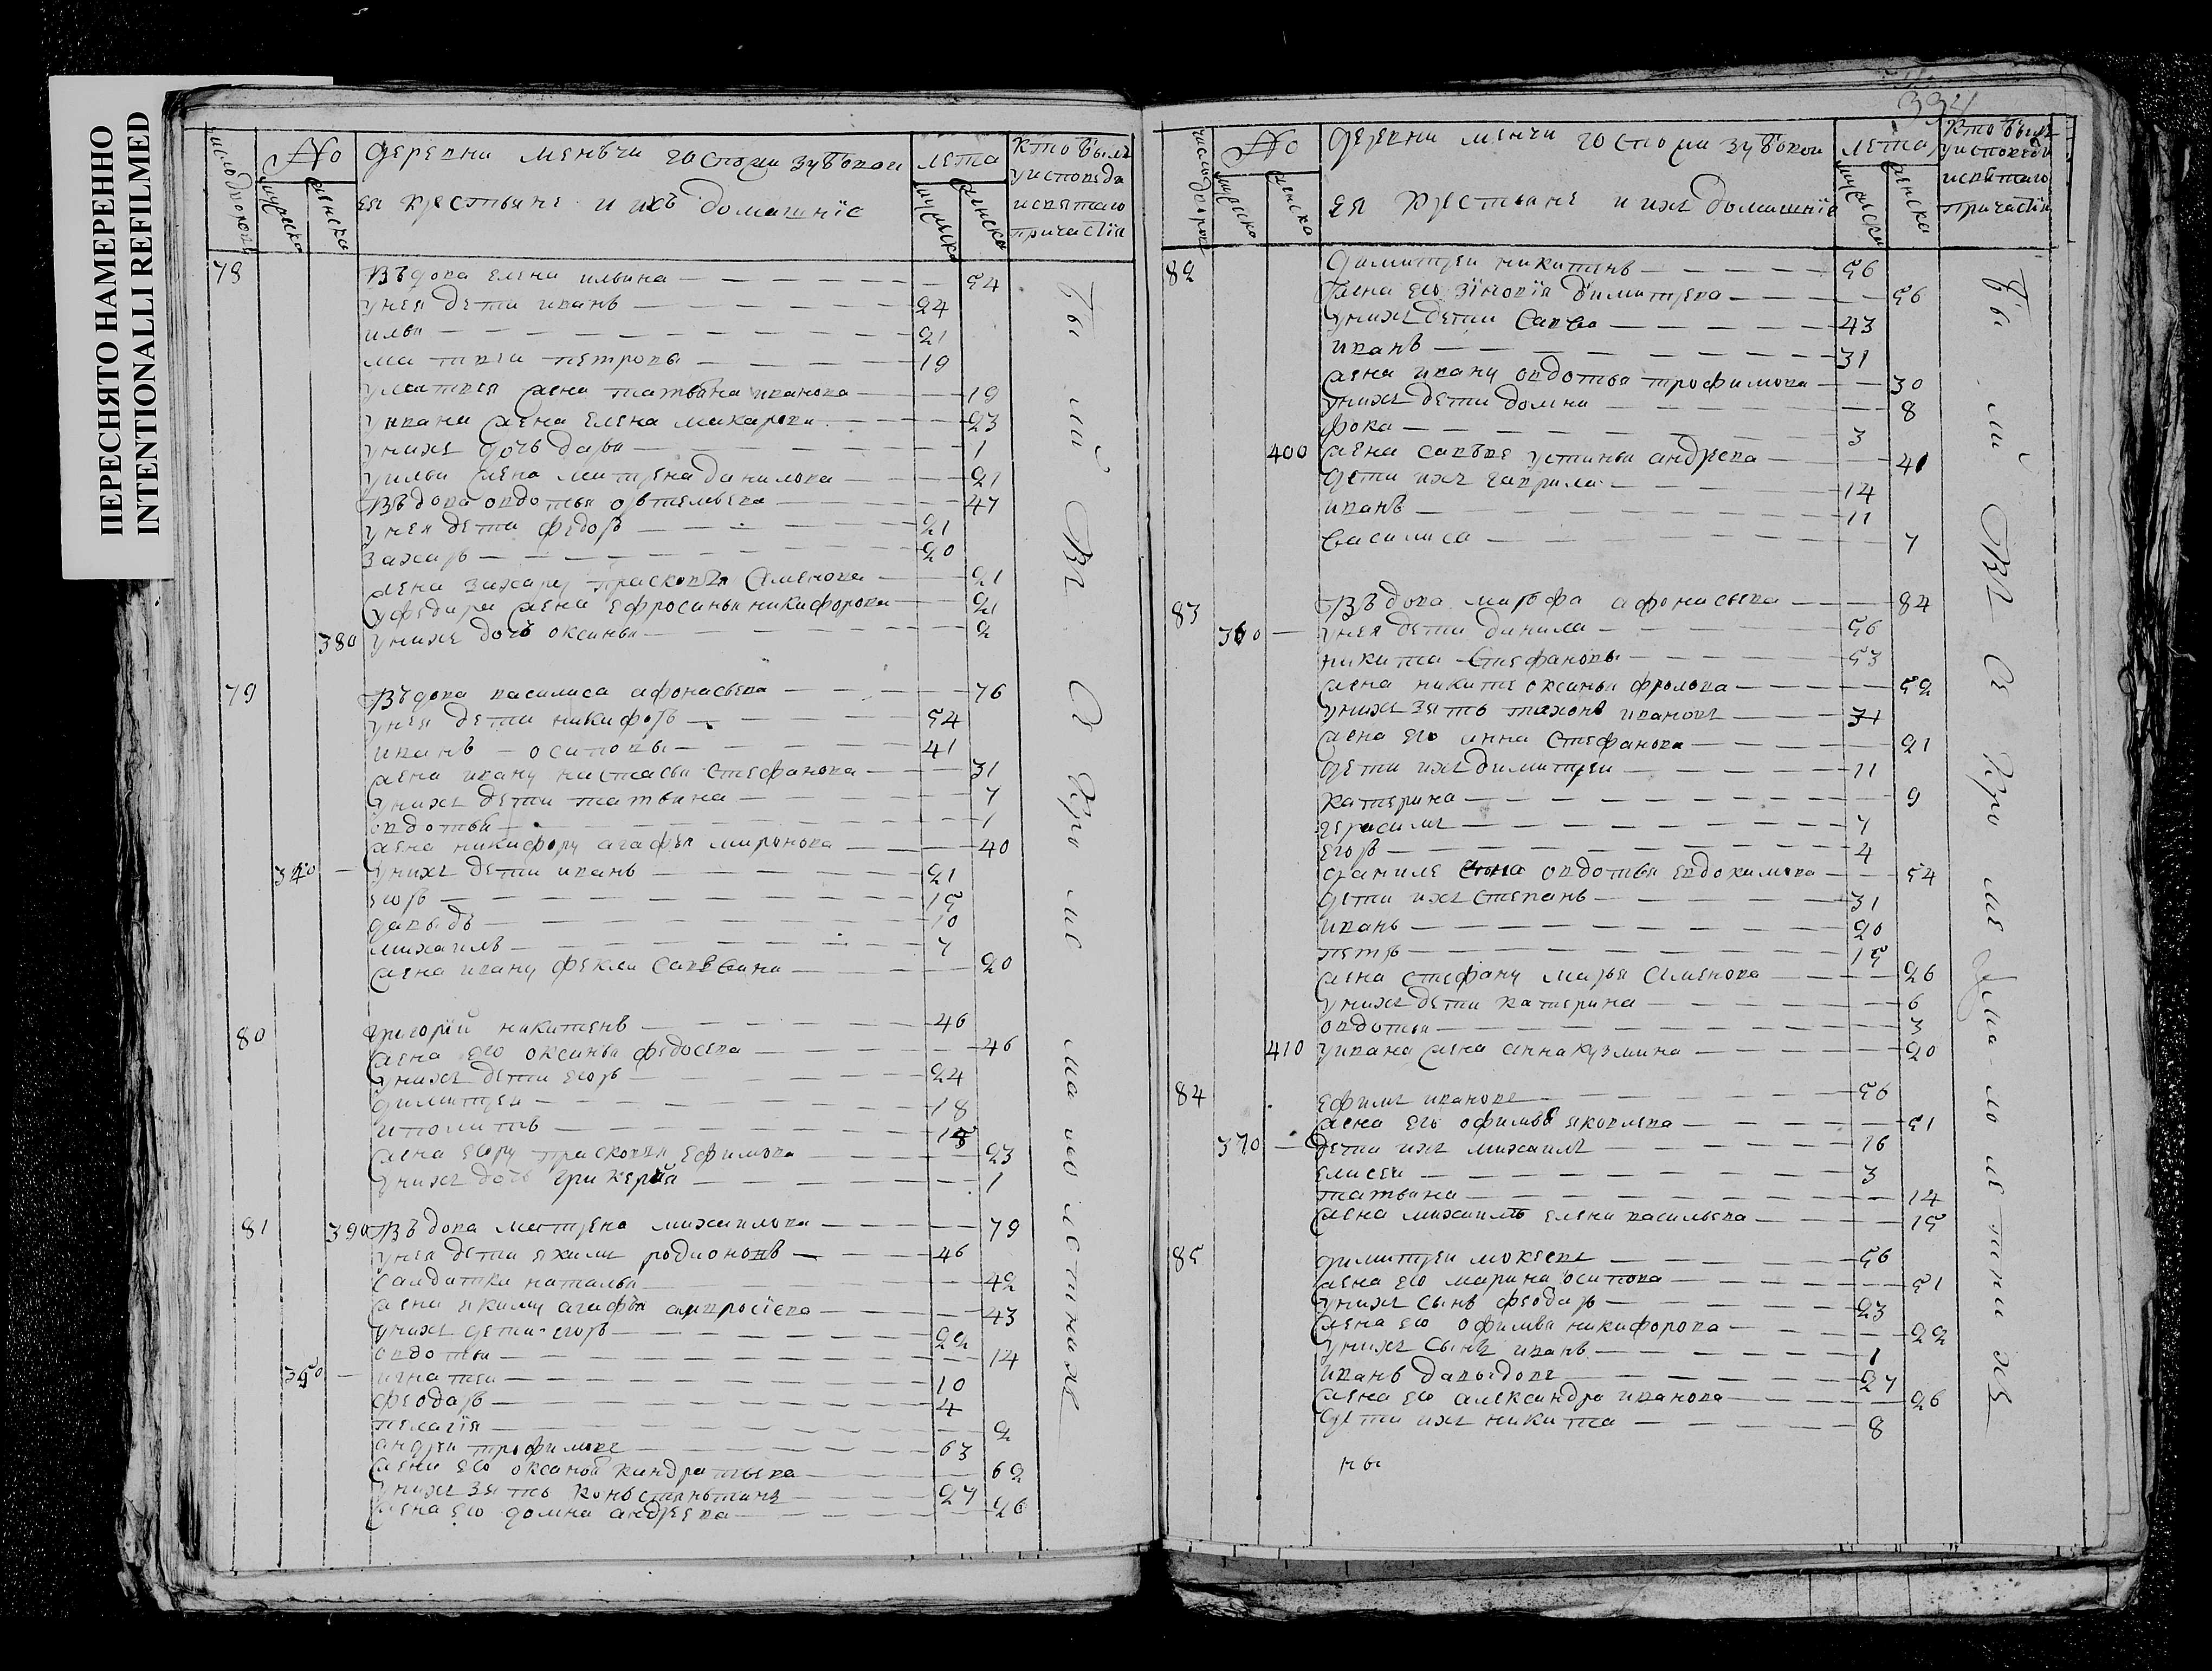 ПЕРЕСНЯТО НАМЕРЕННО
INTENTIONALLI REFILMED
число дворовъ
№
мужеска
женска
деревни меньчи госпожи зубовой
ея крестьяне и ихъ домашнїе
лета
мужеска
женска
кто былъ
у исповеди
и святаго
причастїя
78 въдова елена ильина 54
у нея дети иванъ 24
илья 21
матвеи петровы 19
у матвея жена татьяна иванова 19
у ивана жена елена макарова 23
у нихъ дочь дарья 1
у ильи жена матрена данилова 21
въдова овдотья 47
у нея дети федоръ 21
захаръ 20
жена захару прасковья семенова 21
у федора жена ефросинья никифорова 21
380 у нихъ дочь оксинья 2
79 въдова василиса афонасьева 76
у нея дети никифоръ 54
иванъ осиповы 41
жена ивану настасья стефанова 31
у нихъ дети татьяна 7
овдотья 1
жена никифору агафья миронова 40
340 у нихъ дети иванъ 21
егоръ 15
давыдъ 10
михаилъ 7
жена ивану фекла саввина 20
80 григорїй никитенъ 46
жена его оксинья федосева 46
у нихъ дети егоръ 24
димитреи 18
иполитъ
жена егору прасковья ефимова 23
у нихъ дочь 1
81 390 въдова матрена михаилова 79
у нея дети якимъ родионовъ 46
салдатка наталья 42
жена якиму агафья амвросїева 43
у нихъ дети егоръ 22
овдотья 14
350 игнатеи 10
феодоръ 4
пелагїя 2
андреи трофимовъ 63
жена его оксинья кандратьева 62
у нихъ зять коньстяньтинъ 27
жена его домна андреева 26
были въ семъ приходе
334
число дворовъ
№
мужеска
женска
деревни менчи госпожи зубовой
ея крестьяне и ихъ домашнїе
лета
мужеска
женска
кто былъ
у исповеди
и святаго
причастїя
82 димитреи никитенъ 56
жена его зїновїя димитрева 56
у нихъ дети савва 43
иванъ 31
жена ивану овдотья трофимова 30
у нихъ дети домна 8
фока 3
400 жена савве устинья андреева 41
дети ихъ гаврила 14
иванъ 11
василиса 7
83 въдова марьфа афонасьева 84
360 у нея дети данила 56
никита стефановы 53
жена никите оксинья фролова 52
у нихъ зять тихонъ ивановъ 31
жена его анна стефанова 21
дети ихъ димитреи 11
катерина 9
герасимъ 7
егоръ 4
даниле жена овдотья евдокимова 54
дети ихъ степанъ 31
иванъ 20
петръ 15
жена стефану марья семенова 26
у нихъ дети катерина 6
овдотья 3
410 у ивана жена анна кузмина 20
84 ефимъ ивановъ 56
жена его офимья яковлева 51
370 дети ихъ михаилъ 16
елисеи 3
татьяна 14
жена михаилъ елена васильева 15
85 димитреи мокеевъ 56
жена его марина осипова 51
у нихъ сынъ феодоръ 23
жена его офимья никифорова 22
у нихъ сынъ иванъ 1
иванъ давыдовъ 27
жена его александра иванова 26
дети ихъ никита 8